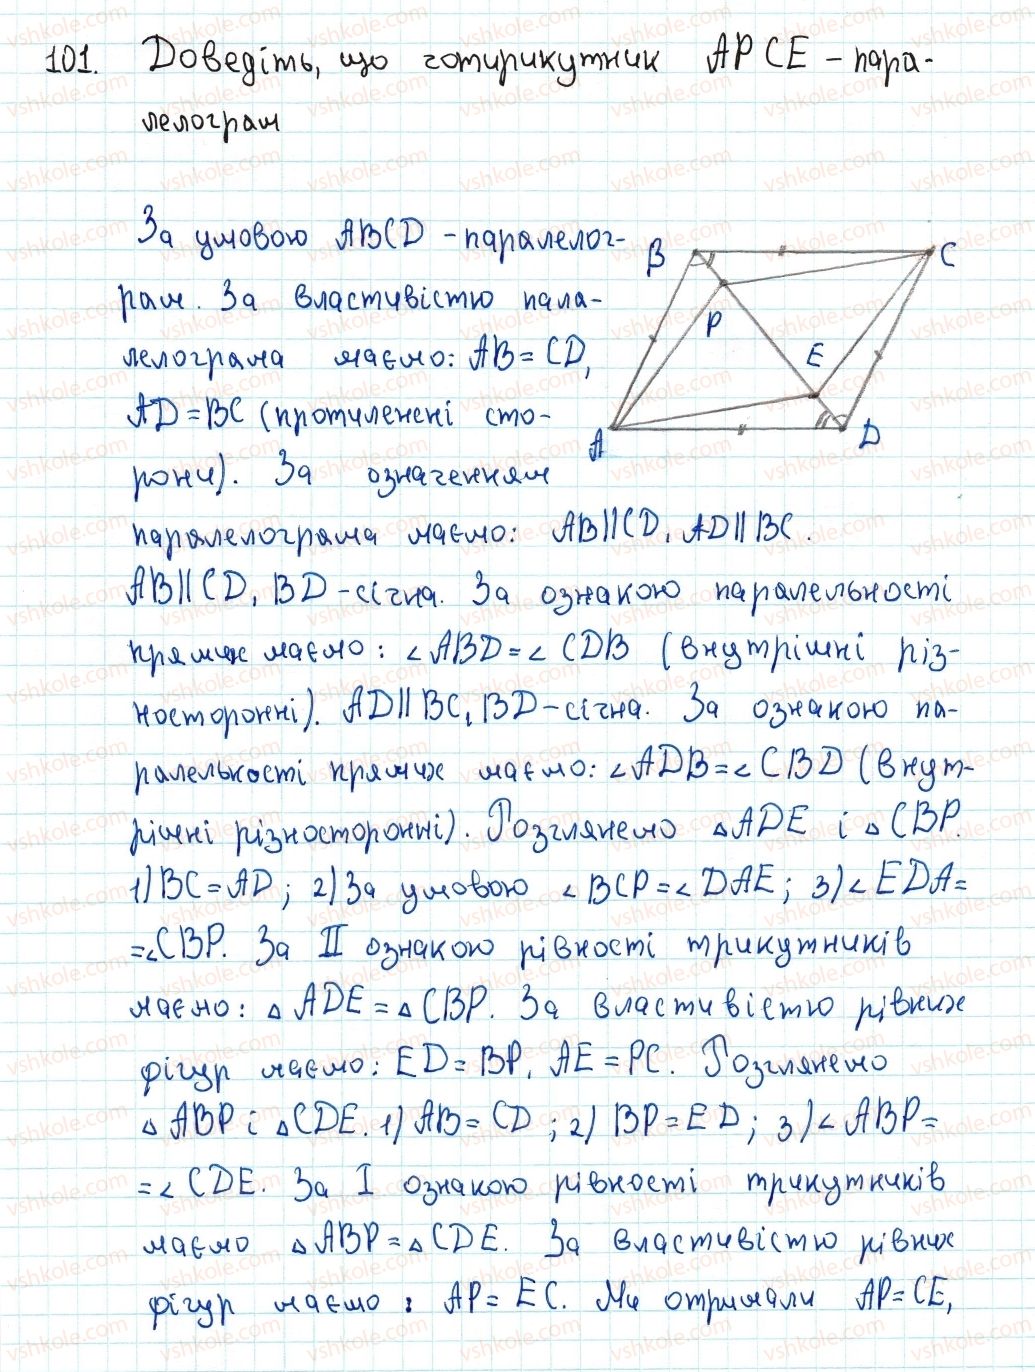 101. Доведіть, що чотирикутник APCE – пара-
лелограм
За умовою ABCD – паралелог-
рам. За властивістю пала-
лелограма маємо: AB = CD,
AD = BC (протилежні сто-
рони). За означенням
паралелограма маємо: AB || CD, AD || BC.
AB || CD, BD – січна. За ознакою паралельності
прямих маємо: ∠ABD = ∠CDB (внутрішні різ-
носторонні). AD || BC, BD – січна. За ознакою па-
ралельності прямих маємо: ∠ADB = ∠CBD (внут-
рішні різносторонні). Розглянемо △ADE і △CBP.
1) BC = AD; 2) За умовою ∠BCP = ∠DAE; 3) ∠EDA =
= ∠CBP. За II ознакою рівності трикутників
маємо: △ADE = △CBP. За властивістю рівних
фігур маємо: ED = BP, AE = PC. Розглянемо
△ABP і △CDE. 1) AB = CD; 2) BP = ED; 3) ∠ABP =
= ∠CDE. За I ознакою рівності трикутників
маємо △ABP = △CDE. За властивістю рівних
фігур маємо: AP = EC. Ми отримали AP = CE,
B
C
P
E
A
D
vshkole.com